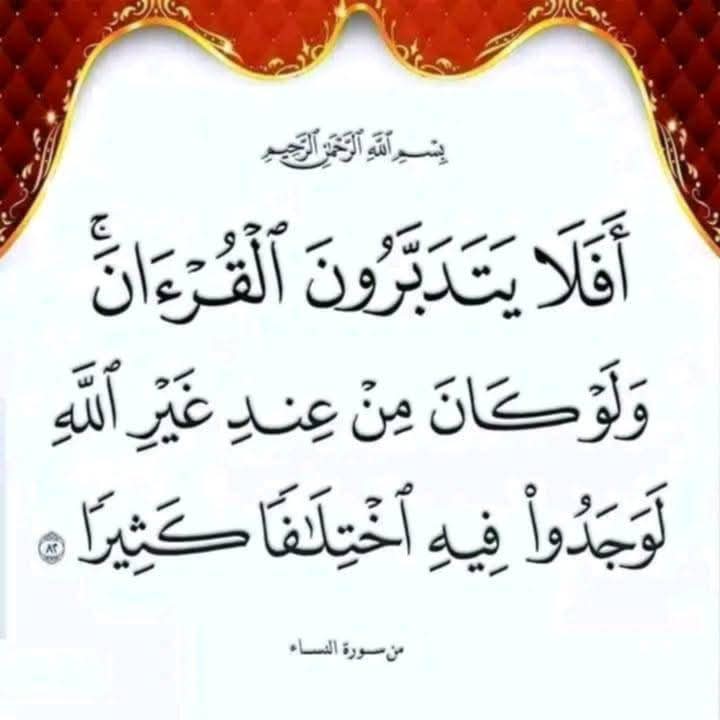 بِسْمِ ٱللَّهِ ٱلرَّحْمَٰنِ ٱلرَّحِيمِ
أَفَلَا يَتَدَبَّرُونَ ٱلْقُرْءَانَۚ
وَلَوْ كَانَ مِنْ عِندِ غَيْرِ ٱللَّهِ
لَوَجَدُوا۟ فِيهِ ٱخْتِلَٰفًا كَثِيرًا ٨٢
من سورة النساء